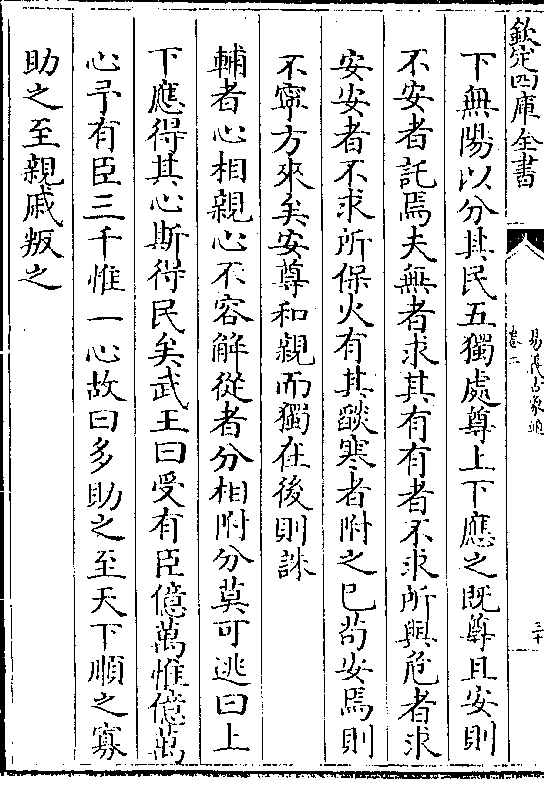 欽定四庫全書
卷二
三十
下無陽以分其民五獨處尊上下應之既尊且安則
不安者託焉夫無者求其有有者不求所與危者求
安安者不求所保火有其燄寒者附之已苟安焉則
不寧方來矣安尊和親而獨在後則誅
輔者心相親心不容解從者分相附分莫可逃曰上
下應得其心斯得民矣武王曰受有臣億萬惟億萬
心予有臣三千惟一心故曰多助之至天下順之寡
助之至親戚叛之